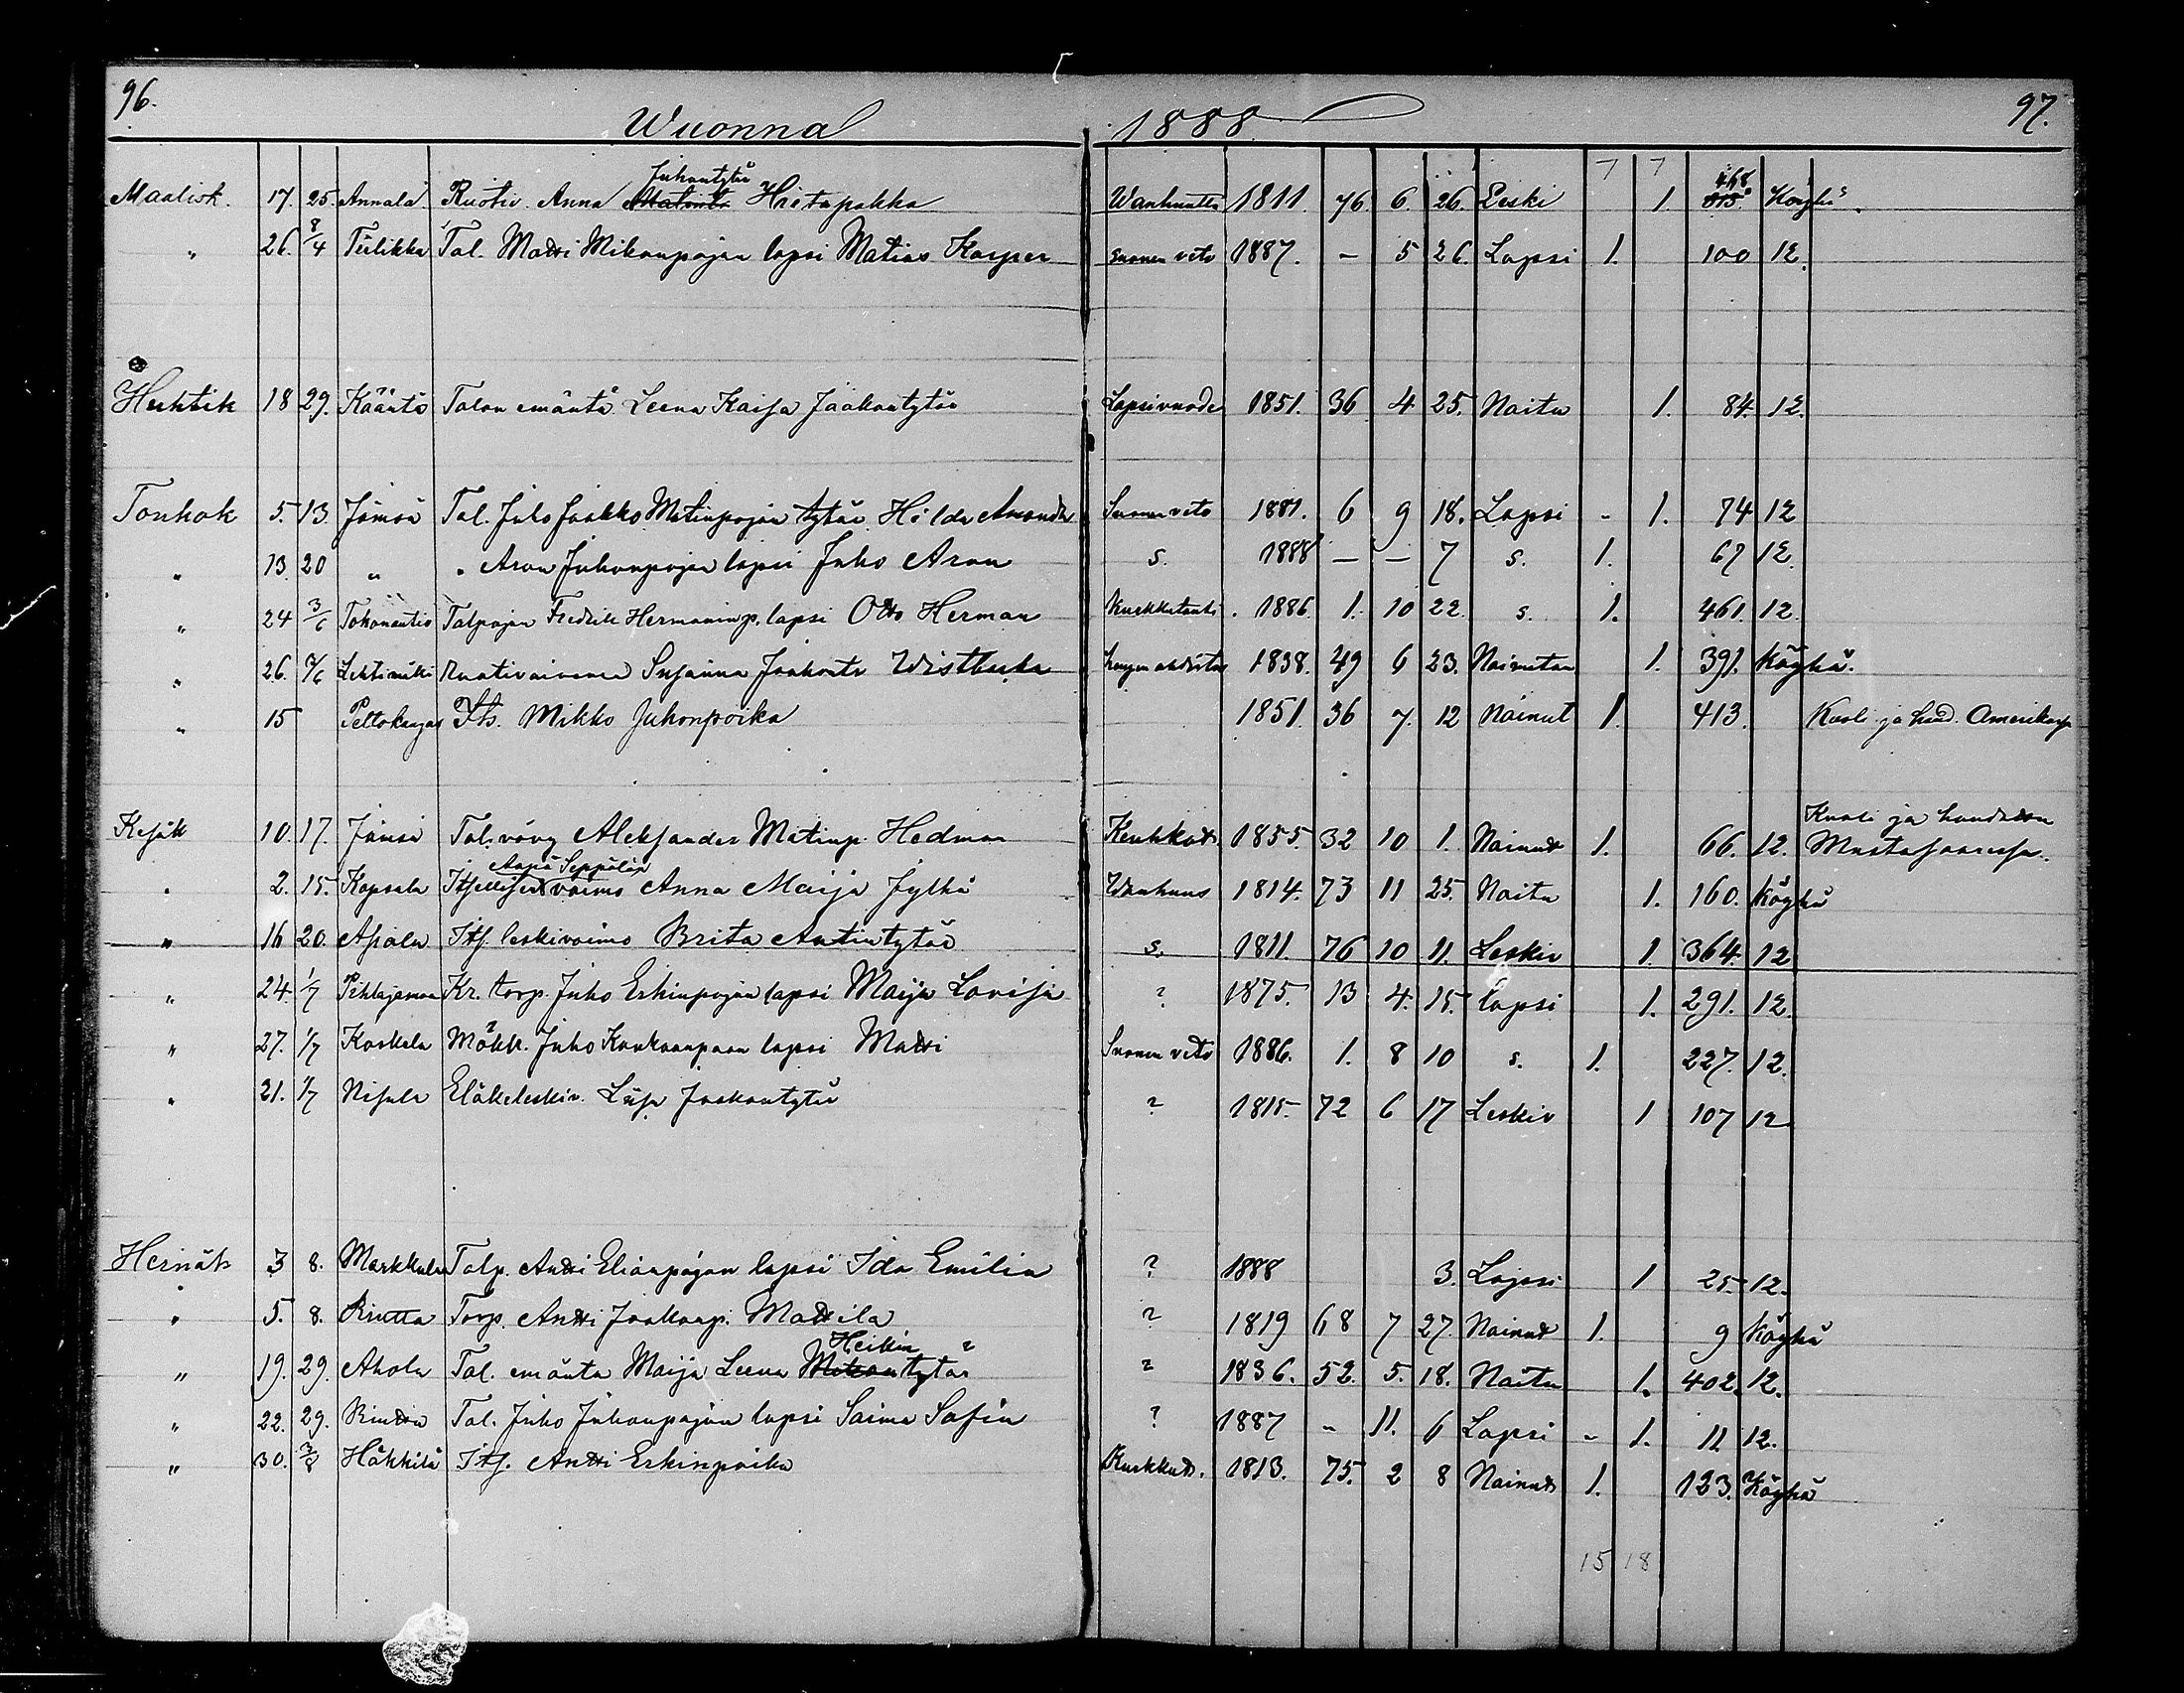 96. 97.
Wuonna 1888
7 7
Juhontytär 468
Maalisk. 17. 25. Annala Ruotiv. Anna Hietapakka Wanhuutta 1811. 76. 6. 26. Leski 1. Köyhä.
" 26. 8/4 Tiilikka Tal. Matti Mikonpojan lapsi Matias Kasper suonen veto 1887. – 5 26. Lapsi 1. 100 12.
Huhtik 18 29. Kääntö Talon emäntä Leena Kaisa Jaakontytär Lapsivuode 1851. 36 4 25. Naitu 1. 84. 12.
Toukok 5. 13. Jämsä Tal. Juho Jaakko Matinpojan tytär Hilda Amanda Suonen veto 1881. 6 9 18. Lapsi - 1. 74 12
" 13. 20 " " Aron Juhonpojan lapsi Juho Aron s. 1888 – – 7 s. 1. 67 12.
" 24 3/6 Tokonautio Talpojan Fredrik Hermaninp. lapsi Otto Herman Kurkkutauti. 1886. 1. 10 22. s. 1. 461. 12.
" 26. /6 Lehtimäki Ruotivaivanen Susanna Jaakontr Wistbacka hengen ahdistus 1838. 49 6 23. Naimaton 1. 391. Köyhä.
" 15 Peltokangas Its. Mikko Juhonpoika 1851. 36 7. 12 Nainut 1. 413. Kuoli ja haud. Amerikassa
Kuoli ja haudattu
Kesäk 10. 17. Jämsä Tal. vävy Aleksander Matinp. Hedman Keuhkot. 1855. 32 10 1. Nainut 1. 66. 12. Mustasaaressa.
Aapo Seppälän
" 2. 15. Kapsala Itsellisen vaimo Anna Maija Jylhä Wanhuus 1814. 73 11 25. Naitu 1. 160. Köyhä
" 16 20. Asiala Its. leskivaimo Brita Antintytär s. 1811. 76 10 11. Leskiv 1. 364. 12
" 24. 1/7 Pihlajamaa Kr. torp. Juho Erkinpojan lapsi Maija Lovisa ? 1875. 13 4. 15. lapsi 1. 291. 12.
" 27. 1/7 Koskela Mökk. Juho Kankaanpään lapsi Matti Suonen veto 1886. 1. 8 10 s. 1. 227. 12.
" 21. 1/7 Nisula Eläkeleskiv. Liisa Jaakontytär ? 1815. 72 6 17 Leskiv 1 107 12
Heinäk 3 8. Markkula Talp. Antti Elianpojan lapsi Ida Emilia ? 1888 3. Lapsi 1 25. 12.
" 5. 8. Riutta Torp. Antti Jaakonp. Mattila ? 1819 68 7 27. Nainut 1. 9 Köyhä
Heikin
" 19. 29. Ahola Tal. emäntä Maija Leena Mikon tytär ? 1836. 52. 5. 18. Naitu 1. 402. 12.
" 22. 29. Rintta Tal. Juho Juhonpojan lapsi Saima Sofia ? 1887 - 11. 6 Lapsi - 1. 11 12.
" 30. 3/8 Häkkilä Its. Antti Erkinpoika Kurkkut. 1813. 75. 2 8 Nainut 1. 123. Köyhä
15 18